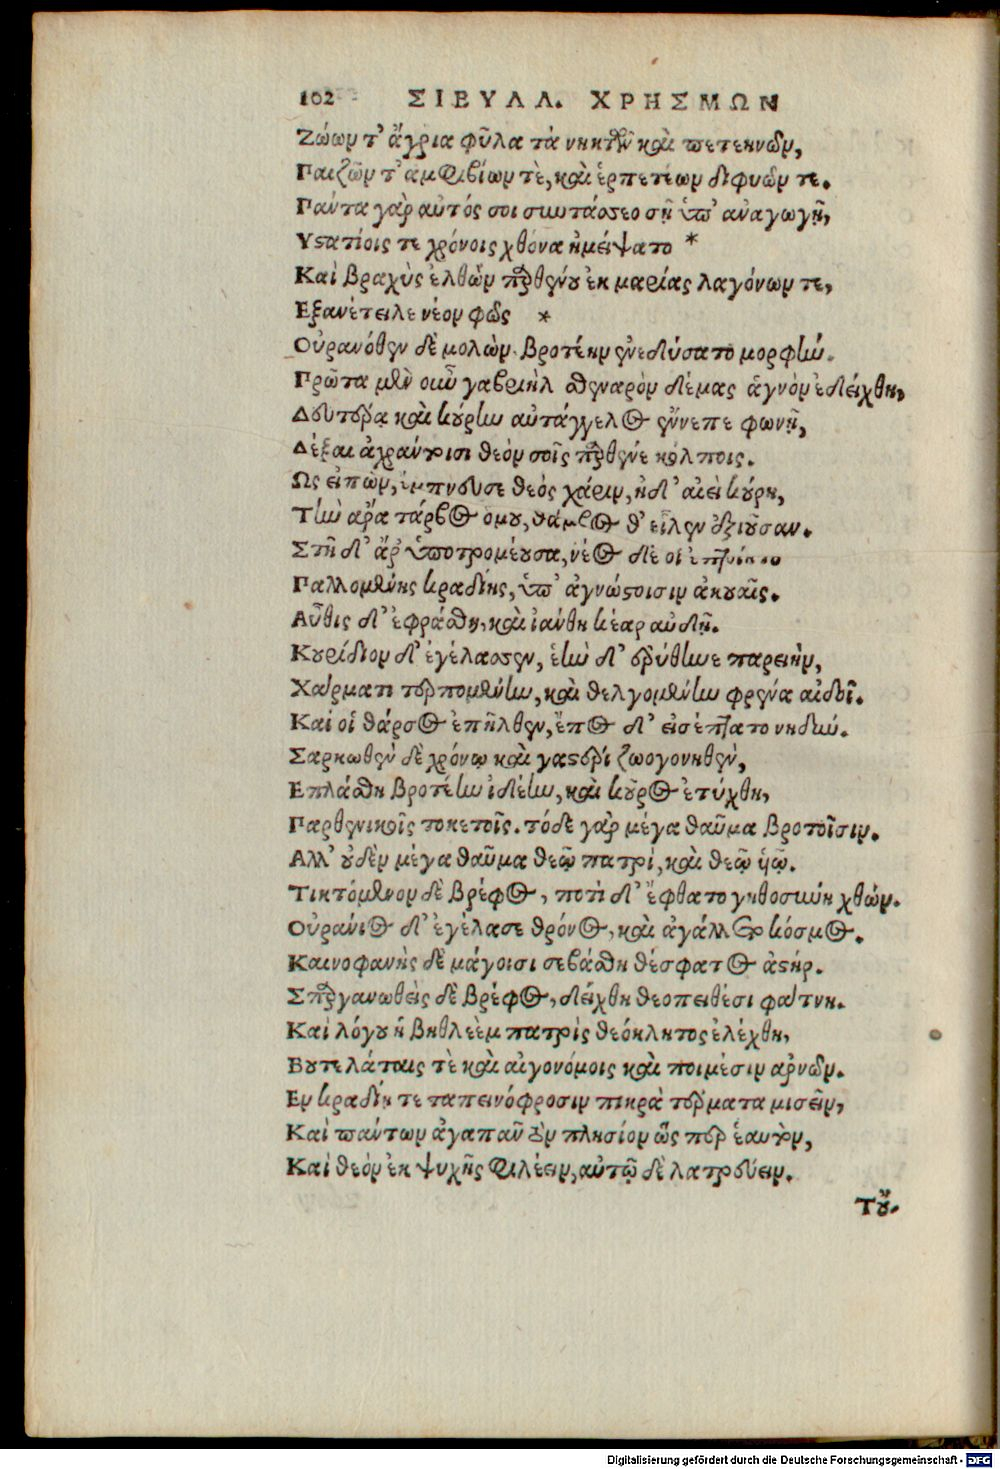 102 ΣΙΒΥΛΛ. ΧΡΗΣΜΩΝ
Ζώων τ' ἄγρια φῦλα τὰ νηκτῶν καὶ πετεηνῶν,
Γαιζῶν τ' ἀμφιβίων τὲ, καὶ ἑρπετέων διφυῶν τε.
Γάντα γὰρ αὐτός σοι συνετάσσεο σῇ ὑπ' ἀναγωγῇ,
Υστατίοις τε χρόνοις χθόνα ἠμείψατο *
Καὶ βραχὺς ἐλθὼν παρθένου ἐκ μαρίας λαγόνων τε,
Εξανέτειλε νέον φῶς *
Οὐρανόθεν δὲ μολὼν βροτέην ἐνεδύσατο μορφὴν.
Πρῶτα μὲν οὖν γαβριὴλ σθεναρὸν δέμας ἁγνὸν ἐδείχθη,
Δεύτερα καὶ κούρην αὐτάγγελος ἔννεπε φωνῇ,
Δέξαι ἀχράντοισι θεὸν σοῖς παρθένε κόλποις.
Ως εἰπὼν, ἔμπνευσε θεός χάριν, ἡδ' αἰεὶ κούρη,
Τὴν ἄρα τάρβος ὁμοῦ, θάμβος θ' εἷλεν ἀΐουσαν.
Στῆ δ' ἄρ ὑποτρομέουσα, νόος δέ οἱ
Παλλομένης κραδίης, ὑπ' ἀγνώστοισιν ἀκουαῖς.
Αὖθις δ' εὐφράνθη, καὶ ἰάνθη κέαρ αὐδῇ.
Κουρίδιον δ' ἐγέλασσεν, ἑὴν δ' ἐρύθηνε παρειὴν,
Χάρματι τερπομένην, καὶ θελγομένην φρένα αἰδοῖ.
Καί οἱ θάρσος ἐπῆλθεν, ἔπος δ' εἰσέπτατο νηδύν.
Σαρκωθὲν δὲ χρόνῳ καὶ γαστέρι ζωογονηθὲν,
Επλάσθη βροτέην ἰδέην, καὶ κοῦρος ἐτύχθη,
Παρθενικοῖς τοκετοῖς. τόδε γὰρ μέγα θαῦμα βροτοῖσιν.
Αλλ' οὐδὲν μέγα θαῦμα θεῷ πατρί, καὶ θεῷ υἱῷ.
Τικτόμενον δὲ βρέφος, ποτὶ δ' ἔφθατο γηθοσύνη χθών.
Οὐράνιος δ' ἐγέλασε θρόνος, καὶ ἀγάλλετο κόσμος.
Καινοφανὴς δὲ μάγοισι σεβάσθη θέσφατος ἀστήρ.
Σπαργανωθεὶς δὲ βρέφος, δείχθη θεοπειθέσι φάτνη.
Καὶ λόγου ἡ βηθλεὲμ πατρὶς θεόκλητος ἐλέχθη,
Βουτελάταις τὲ καὶ αἰγονόμοις καὶ ποιμέσιν ἀρνῶν.
Εν κραδίῃ τε ταπεινόφροσιν πικρὰ τέρματα μισεῖν,
Καὶ πάντων ἀγαπᾶν τὸν πλησίον ὥς περ ἑαυτὸν,
Καὶ θεὸν ἐκ ψυχῆς φιλέειν, αὐτῷ δὲ λατρεύειν.
Τοὔ.
Digitalisierung gefördert durch die Deutsche Forschungsgemeinschaft - DFG